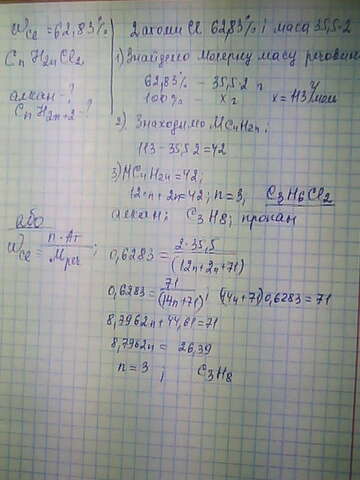 Wcl = 62,83%
CnH2nCl2
алкан - ?
CnH2n+2 - ?
2 атоми Cl 62,83% і маса 35,5·2
1) Знайдемо молярну масу речовини
62,83% - 35,5·2 г
100% - x г x = 113 г/моль
2) Знаходимо MCnH2n;
113 - 35,5·2 = 42
3) MCnH2n = 42;
12n + 2n = 42; n = 3, C3H6Cl2
алкан; C3H8; пропан
або
Wcl = n · Ar / Mреч ;
0,6283 = 2·35,5 / (12n+2n+71)
0,6283 = 71 / (14n+71) ; (14n+71)0,6283 = 71
8,7962n + 44,61 = 71
8,7962n = 26,39
n = 3 ; C3H8